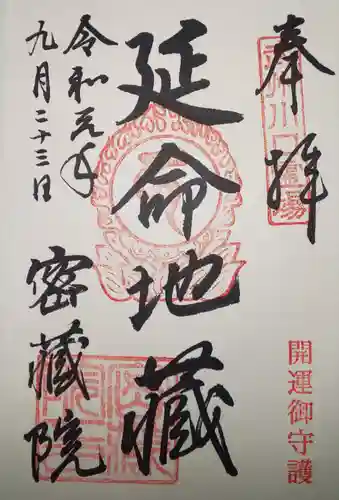 奉拝
延命地藏
令和元年
九月二十三日
密藏院
開運御守護